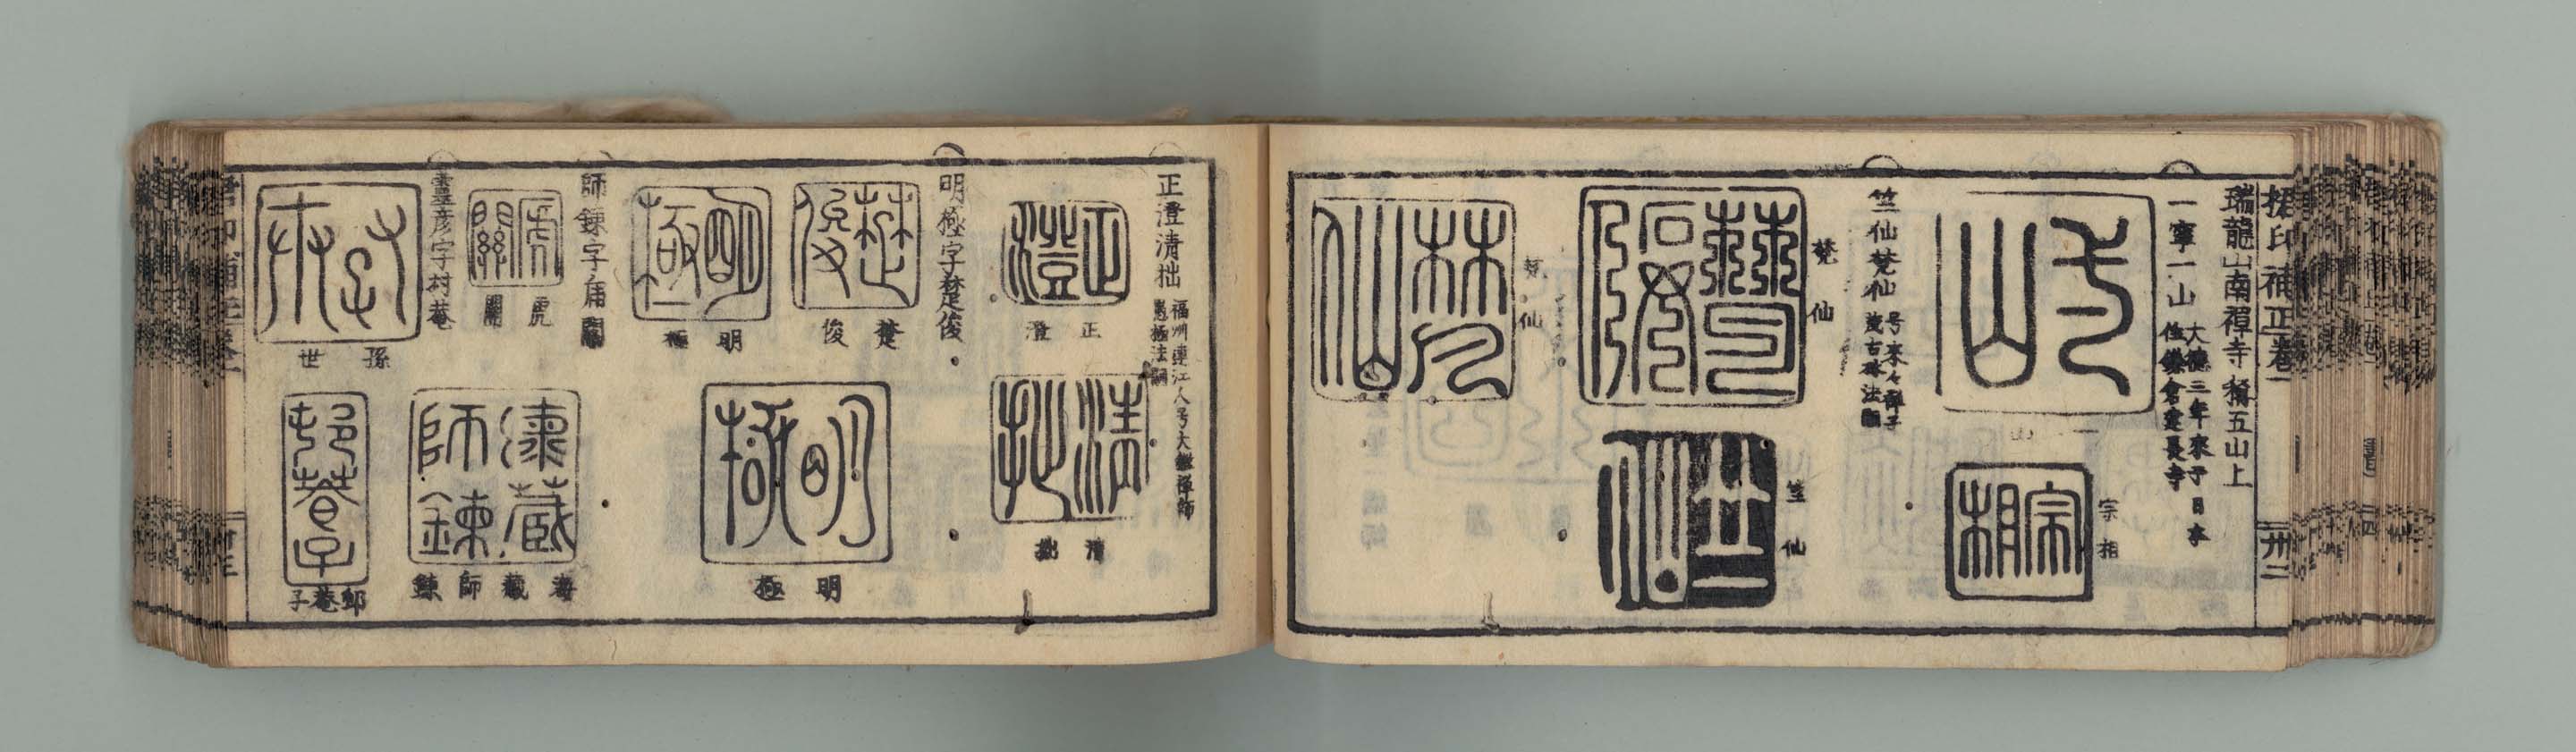 印補正卷一
瑞龍山南禪寺 稱五山上
一寧一山 大德三年來于日本
住鎌倉建長寺
山
宗相
竺仙梵仙 号來々禪子
茂古林法嗣
梵仙
竺仙
梵仙
卅二
正澄清拙 福州連江人号大鑑禪師
愚極法嗣
正澄
清拙
明極字楚俊
楚俊
明極
明極
師錬字虎關
虎關
海藏師錬
靈彦字村菴
孫世
邨菴子